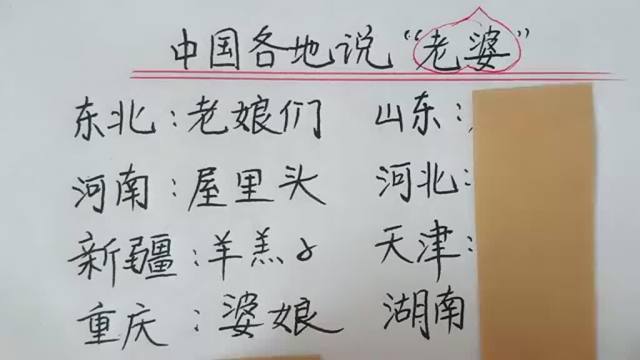 中国各地说“老婆”
东北：老娘们 山东：
河南：屋里头 河北：
新疆：羊羔子 天津：
重庆：婆娘 湖南